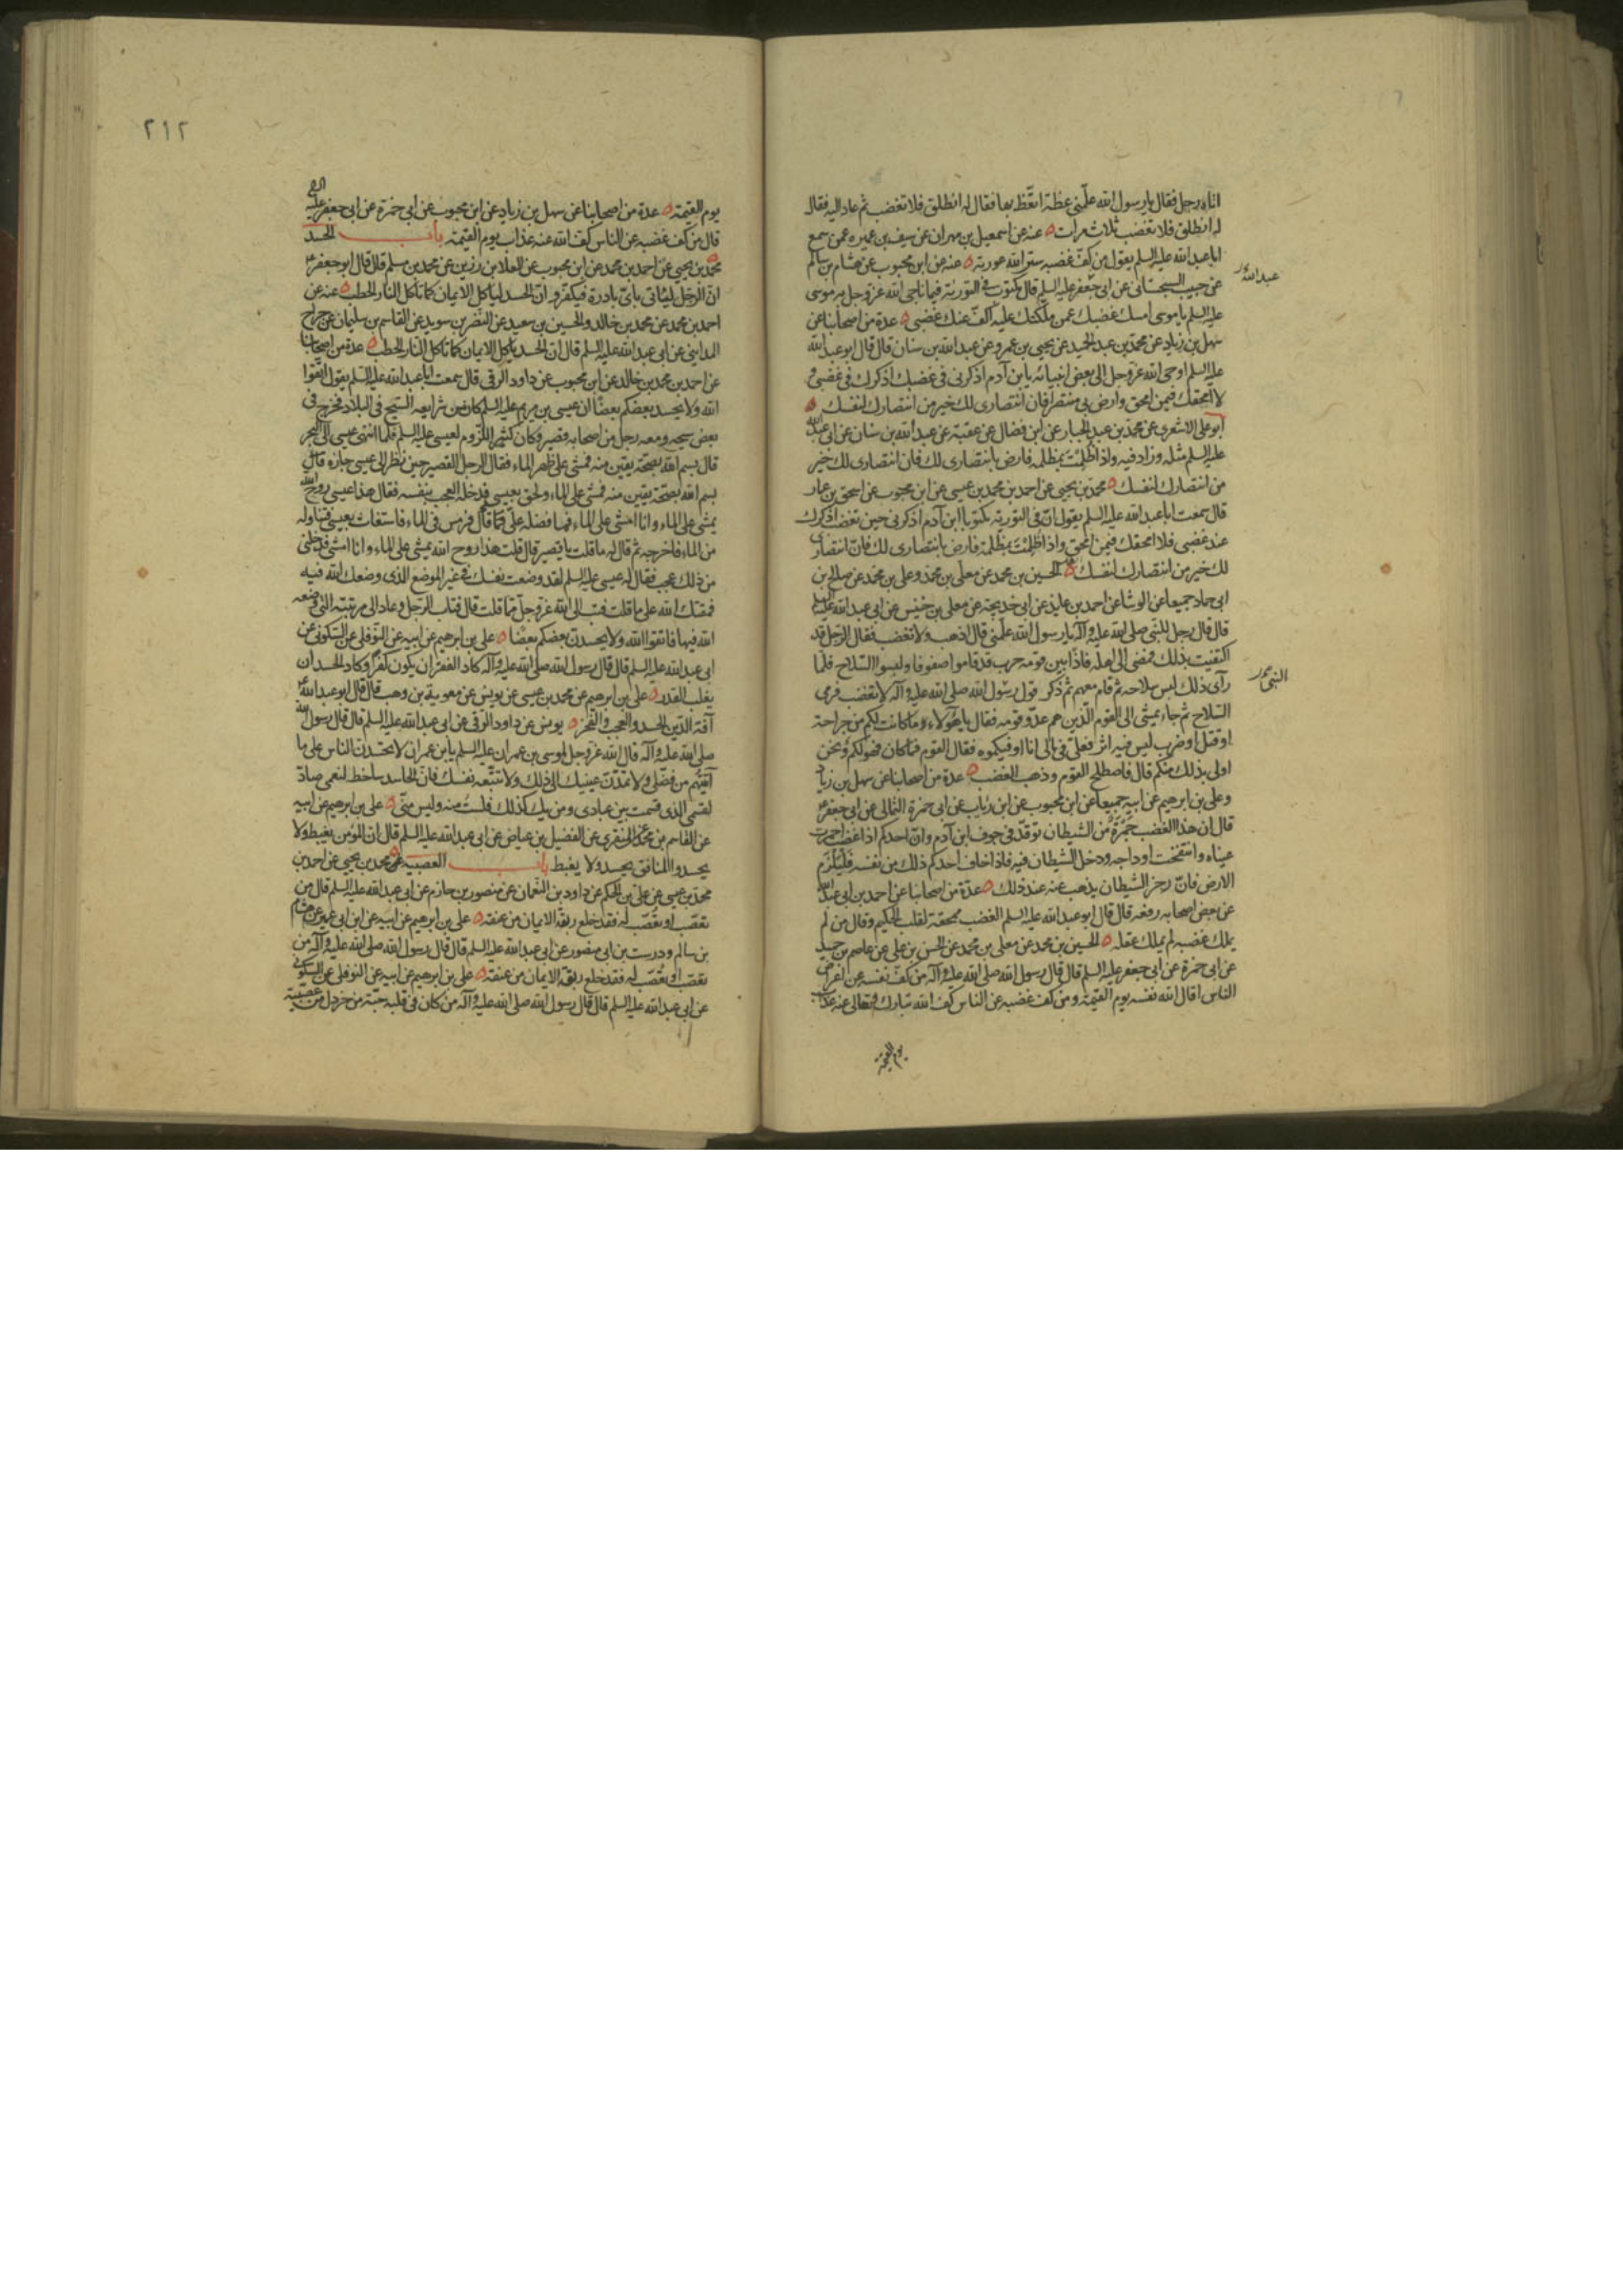 اتاه رجل فقال يا رسول الله علّمني عظة اتّعظ بها فقال له انطلق فلا تغضب ثم عاد اليه فقال
له انطلق فلا تغضب ثلاث مرات عنه عن اسمعيل بن مهران عن سيف بن عميره عمن سمع
ابا عبد الله عليه السلم يقول من كفّ غضبه ستر الله عورته عنه عن ابن محبوب عن هشام بن سالم
عن حبيب السجستاني عن ابي جعفر عليه السلم قال مكتوب في التورية فيما ناجى الله عز وجل به موسى
عبد الله
عليه السلم يا موسى امسك غضبك عمن ملكتك عليه اكفّ عنك غضبي عدة من اصحابنا عن
سهل بن زياد عن محمد بن عبد الحميد عن يحيى بن عمرو عن عبد الله بن سنان قال قال ابو عبد الله
عليه السلم اوحى الله عز وجل الى بعض انبيائه يا بن آدم اذكرني في غضبك اذكرك في غضبي و
لا امحقك فيمن امحق وارض بي منتصرا فان انتصاري لك خير من انتصارك لنفسك
ابو علي الاشعري عن محمد بن عبد الجبار عن ابن فضال عن عقبة عن عبد الله بن سنان عن ابي عبد الله
عليه السلم مثله وزاد فيه واذا ظلمت بمظلمه فارض بانتصاري لك فان انتصاري لك خير
من انتصارك لنفسك محمد بن يحيى عن احمد بن محمد بن عيسى عن ابن محبوب عن اسحق بن عمار
قال سمعت ابا عبد الله عليه السلم يقول ان في التورية مكتوبا ابن آدم اذكرني حين تغضب اذكرك
عند غضبي فلا امحقك فيمن امحق واذا ظلمت بمظلمة فارض بانتصاري لك فان انتصاري
لك خير من انتصارك لنفسك الحسين بن محمد عن معلى بن محمد وعلي بن محمد عن صالح بن
ابي حماد جميعا عن الوشا عن احمد بن عايذ عن ابي خديجة عن معلى بن خنيس عن ابي عبد الله عليه السلم
قال قال رجل للنبي صلى الله عليه وآله يا رسول الله علّمني قال اذهب ولا تغضب فقال الرجل قد
اكتفيت بذلك فمضى الى اهله فاذا بين قومه حرب قد قاموا صفوفا ولبسوا السلاح فلما
النبي
رآى ذلك لبس سلاحه ثم قام معهم ثم ذكر قول رسول الله صلى الله عليه وآله لا تغضب فرمى
السلاح ثم جاء يمشي الى القوم الذين هم عدوّ قومه فقال يا هؤلاء ما كانت لكم من جراحة
او قتل او ضرب ليس فيه اثر فعليّ في مالي انا اوفيكموه فقال القوم فما كان فهو لكم ونحن
اولى بذلك منكم قال فاصطلح القوم وذهب الغضب عدة من اصحابنا عن سهل بن زياد
وعلي بن ابرهيم عن ابيه جميعا عن ابن محبوب عن ابن رئاب عن ابي حمزة الثمالي عن ابي جعفر
قال ان هذا الغضب جمرة من الشيطان توقد في جوف ابن آدم وان احدكم اذا غضب احمرت
عيناه وانتفخت اوداجه ودخل الشيطان فيه فاذا خاف احدكم ذلك من نفسه فليلزم
الارض فان رجز الشيطان يذهب عنه عند ذلك عدة من اصحابنا عن احمد بن ابي عبد الله
عن بعض اصحابه رفعه قال قال ابو عبد الله عليه السلم الغضب ممحقة لقلب الحكيم وقال من لم
يملك غضبه لم يملك عقله الحسين بن محمد عن معلى بن محمد عن الحسن بن علي عن عاصم بن حميد
عن ابي حمزة عن ابي جعفر عليه السلم قال قال رسول الله صلى الله عليه وآله من كفّ نفسه عن اعراض
الناس اقال الله نفسه يوم القيمة ومن كف غضبه عن الناس كف الله تبارك وتعالى عنه عذاب
يوم القيمة
٢١٢
يوم القيمة عدة من اصحابنا عن سهل بن زياد عن ابن محبوب عن ابي حمزة عن ابي جعفر عليه السلم
قال من كف غضبه عن الناس كف الله عنه عذاب يوم القيمة باب الحسد
محمد بن يحيى عن احمد بن محمد عن ابن محبوب عن العلا بن رزين عن محمد بن مسلم قال قال ابو جعفر
ان الرجل ليأتي باي بادرة فيكفر وان الحسد لياكل الايمان كما تاكل النار الحطب عنه عن
احمد بن محمد عن محمد بن خالد والحسين بن سعيد عن النضر بن سويد عن القاسم بن سليمان عن جراح
المدايني عن ابي عبد الله عليه السلم قال ان الحسد ياكل الايمان كما تاكل النار الحطب عدة من اصحابنا
عن احمد بن محمد بن خالد عن ابن محبوب عن داود الرقي قال سمعت ابا عبد الله عليه السلم يقول اتقوا
الله ولا يحسد بعضكم بعضا ان عيسى بن مريم عليه السلم كان من شرايعه السيح في البلاد فخرج في
بعض سيحه ومعه رجل من اصحابه قصير وكان كثير اللزوم لعيسى عليه السلم فلما انتهى عيسى الى البحر
قال بسم الله بصحة يقين منه فمشى على ظهر الماء فقال الرجل القصير حين نظر الى عيسى جازه قال
بسم الله بصحة يقين منه فمشى على الماء ولحق بعيسى فدخله العجب بنفسه فقال هذا عيسى روح الله
يمشي على الماء وانا امشي على الماء فما فضله علي قال فرمس في الماء فاستغاث بعيسى فتناوله
من الماء فاخرجه ثم قال له ما قلت يا قصير قال قلت هذا روح الله يمشي على الماء وانا امشي فدخلني
من ذلك عجب فقال له عيسى عليه السلم لقد وضعت نفسك في غير الموضع الذي وضعك الله فيه
فمقتك الله على ما قلت فتب الى الله عز وجل مما قلت قال فتاب الرجل وعاد الى مرتبته التي وضعه
الله فيها فاتقوا الله ولا يحسدن بعضكم بعضا علي بن ابرهيم عن ابيه عن النوفلي عن السكوني عن
ابي عبد الله عليه السلم قال قال رسول الله صلى الله عليه وآله كاد الفقر ان يكون كفرا وكاد الحسد ان
يغلب القدر علي بن ابرهيم عن محمد بن عيسى عن يونس عن معوية بن وهب قال قال ابو عبد الله
آفة الدين الحسد والعجب والفخر يونس عن داود الرقي عن ابي عبد الله عليه السلم قال قال رسول الله
صلى الله عليه وآله قال الله عز وجل لموسى بن عمران عليه السلم يا بن عمران لا تحسدن الناس على ما
آتيتهم من فضلي ولا تمدن عينيك الى ذلك ولا تتبعه نفسك فان الحاسد ساخط لنعمي صادّ
لقسمي الذي قسمت بين عبادي ومن يك كذلك فلست منه وليس مني علي بن ابرهيم عن ابيه
عن القاسم بن محمد عن المنقري عن الفضيل بن عياض عن ابي عبد الله عليه السلم قال ان المؤمن يغبط ولا
يحسد والمنافق يحسد ولا يغبط باب العصبية محمد بن يحيى عن احمد بن
محمد بن عيسى عن علي بن الحكم عن داود بن النعمان عن منصور بن حازم عن ابي عبد الله عليه السلم قال من
تعصّب او تعصّب له فقد خلع ربقة الايمان من عنقه علي بن ابرهيم عن ابيه عن ابن ابي عمير عن هشام
بن سالم ودرست بن ابي منصور عن ابي عبد الله عليه السلم قال قال رسول الله صلى الله عليه وآله من
تعصّب او تعصّب له فقد خلع ربقة الايمان من عنقه علي بن ابرهيم عن ابيه عن النوفلي عن السكوني
عن ابي عبد الله عليه السلم قال قال رسول الله صلى الله عليه وآله من كان في قلبه حبّة من خردل من عصبية